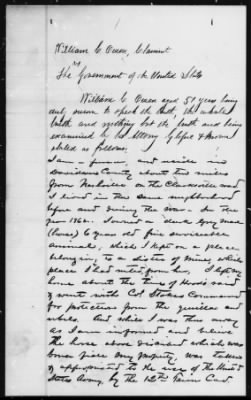 William C Owen, Claimant
vs
The Government of the United States
William C Owen aged 51 years being
duly sworn to speak the truth, the whole
truth and nothing but the truth and being
examined by his Attorney
stated as follows:
I am a farmer, and reside in
Davidson County about ten miles
from Nashville on the Clarksville road
I lived in this same neighborhood
before and during the war. In the
year 186 I owned a Gray
(horse) 6 years old fine serviceable
animal, which I kept on a place
belonging to a sister of mine, which
place I had rented from her. I left my
home about the time of Hood's raid
& went with Col Stokes Command
for protection from the guerillas and
rebels. And while I was thus away
as I am informed and believe
the horse above described which was
bona fide my property, was taken
& appropriated to the use of the United
States Army, by the 12th Tenn Cav.